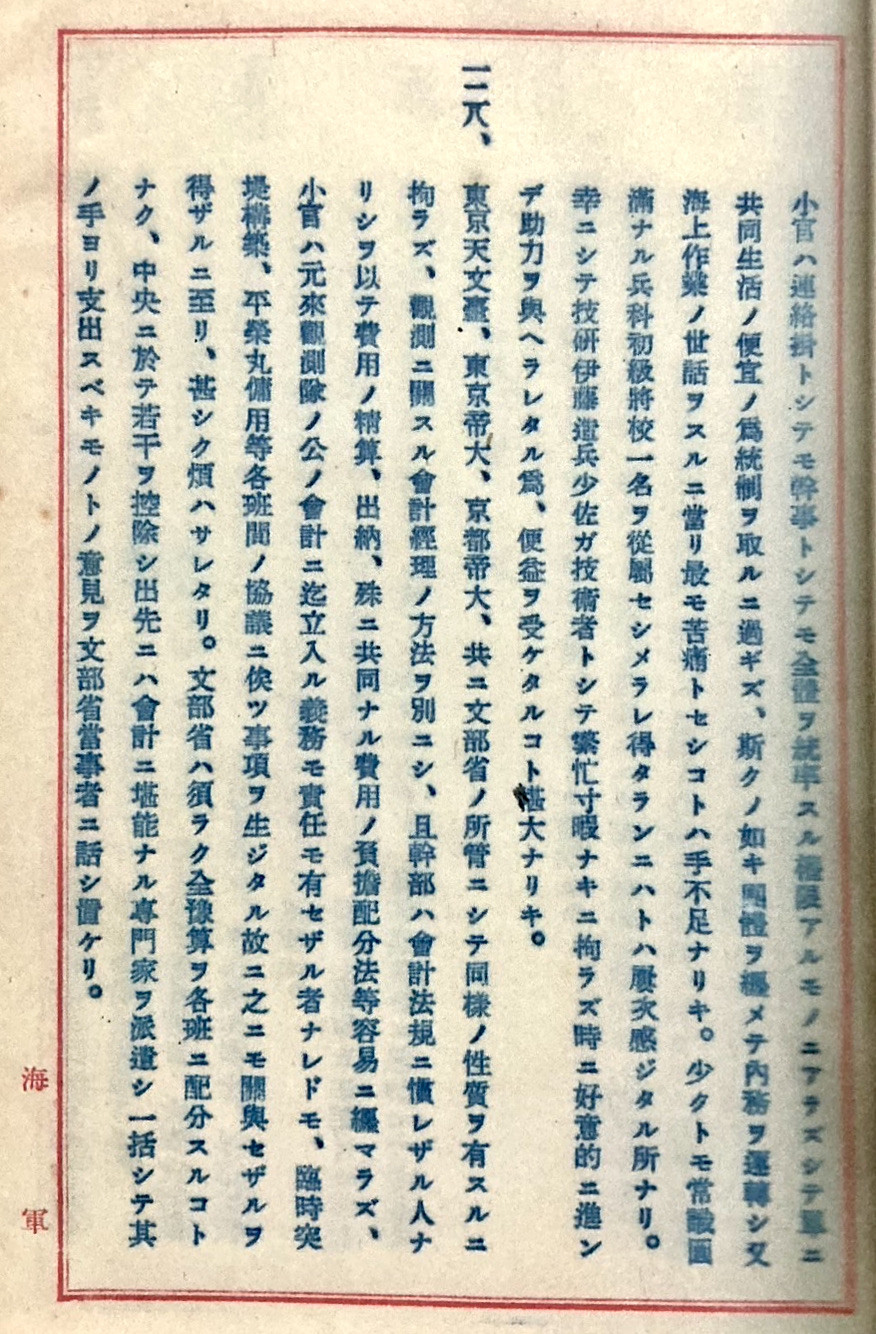 小官ハ連絡掛トシテモ幹事トシテモ全體ヲ統率スル權限アルモノニアラズシテ單ニ
共同生活ノ便宜ノ爲統制ヲ取ルニ過ギズ、斯クノ如キ團體ヲ纒メテ內務ヲ運轉シ又
海上作業ノ世話ヲスルニ當リ最モ苦痛トセシコトハ手不足ナリキ。少クトモ常識圓
滿ナル兵科初級將校一名ヲ從屬セシメラレ得タランニハトハ屢次感ジタル所ナリ。
幸ニシテ技硏伊藤造兵少佐ガ技術者トシテ繁忙寸暇ナキニ拘ラズ時ニ好意的ニ進ン
デ助力ヲ與ヘラレタル爲、便益ヲ受ケタルコト甚大ナリキ。
一二八、東京天文臺、東京帝大、京都帝大、共ニ文部省ノ所管ニシテ同樣ノ性質ヲ有スルニ
拘ラズ、觀測ニ關スル會計經理ノ方法ヲ別ニシ、且幹部ハ會計法規ニ慣レザル人ナ
リシヲ以テ費用ノ精算、出納、殊ニ共同ナル費用ノ負擔配分法等容易ニ纒マラズ、
小官ハ元來觀測隊ノ公ノ會計ニ迄立入ル義務モ責任モ有セザル者ナレドモ、臨時突
堤構築、平榮丸傭用等各班間ノ協議ニ俟ツ事項ヲ生ジタル故ニ之ニモ關與セザルヲ
得ザルニ至リ、甚シク煩ハサレタリ。文部省ハ須ラク全豫算ヲ各班ニ配分スルコト
ナク、中央ニ於テ若干ヲ控除シ出先ニハ會計ニ堪能ナル專門家ヲ派遣シ一括シテ其
ノ手ヨリ支出スベキモノトノ意見ヲ文部省當事者ニ話シ置ケリ。
海軍